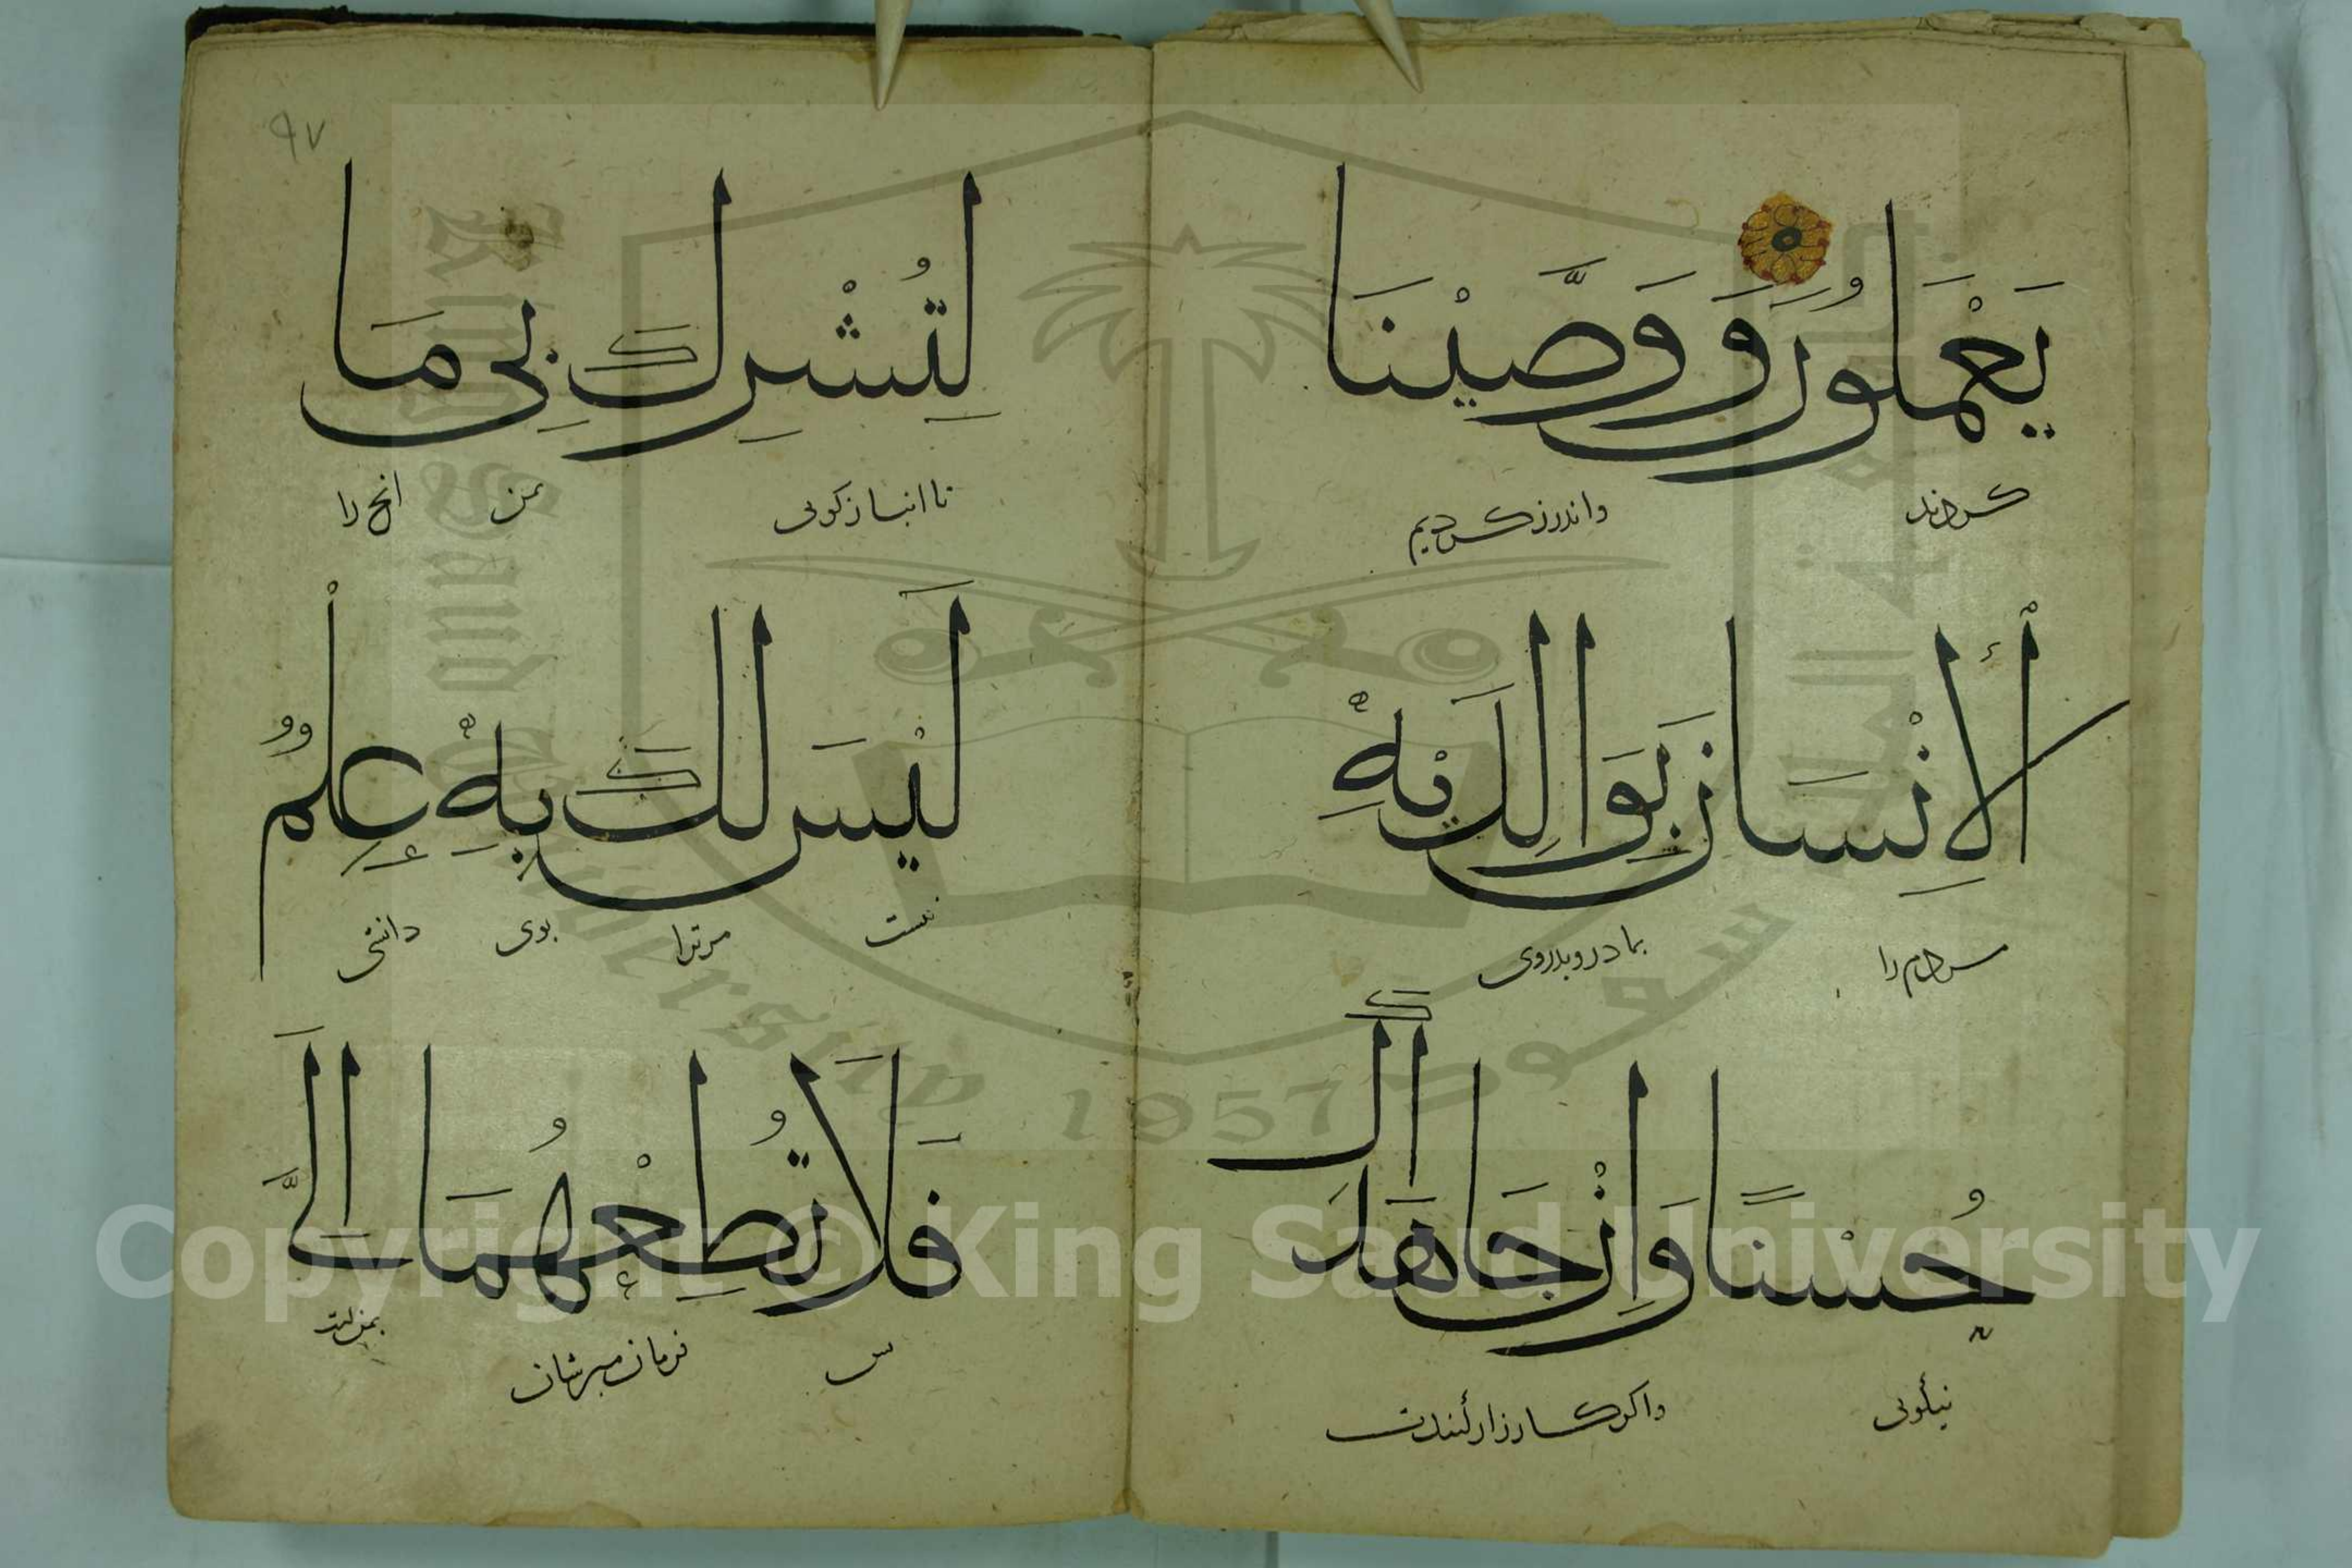 يَعْمَلُونَ وَوَصَّيْنَا
كردند واندرز كرديم
ٱلْإِنسَانَ بِوَالِدَيْهِ
مردم را بمادر وپدر وی
حُسْنًا وَإِنْ جَاهَدَاكَ
نیکویی واکر کارزار کنندت
٩٧
لِتُشْرِكَ بِي مَا
تا انباز کویی بمن انچ را
لَيْسَ لَكَ بِهِ عِلْمٌ
نیست مر ترا بوی دانشی
فَلَا تُطِعْهُمَا إِلَيَّ
فرمان مبرشان بمن
King Saud University 1957
Copyright © King Saud University